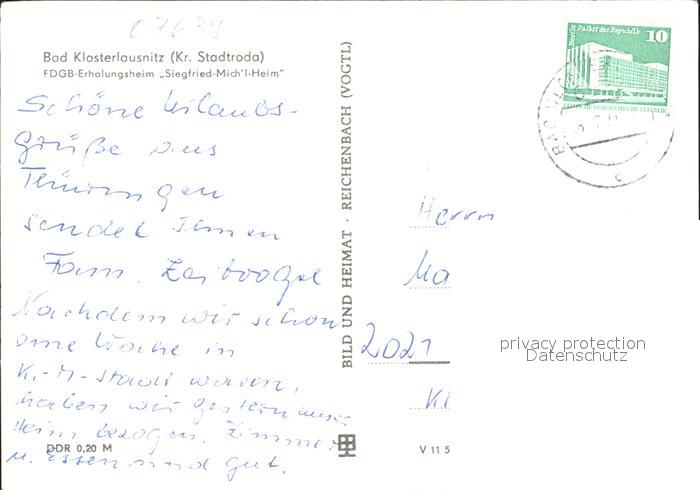 07639
Bad Klosterlausnitz (Kr. Stadtroda)
FDGB-Erholungsheim „Siegfried-Mich'l-Heim"
Schöne Urlaubs-
grüße aus
Thüringen
sendet Ihnen
Fam.
Nachdem wir schon
eine Woche in
K.-M-Stadt waren,
haben wir gestern unser
Heim bezogen. Zimmer
u. Essen sind gut.
DDR 0,20 M
BILD UND HEIMAT · REICHENBACH (VOGTL)
V 11 5
Berlin Palast der Republik
10
Herrn
Ma
2021
Kl
privacy protection
Datenschutz